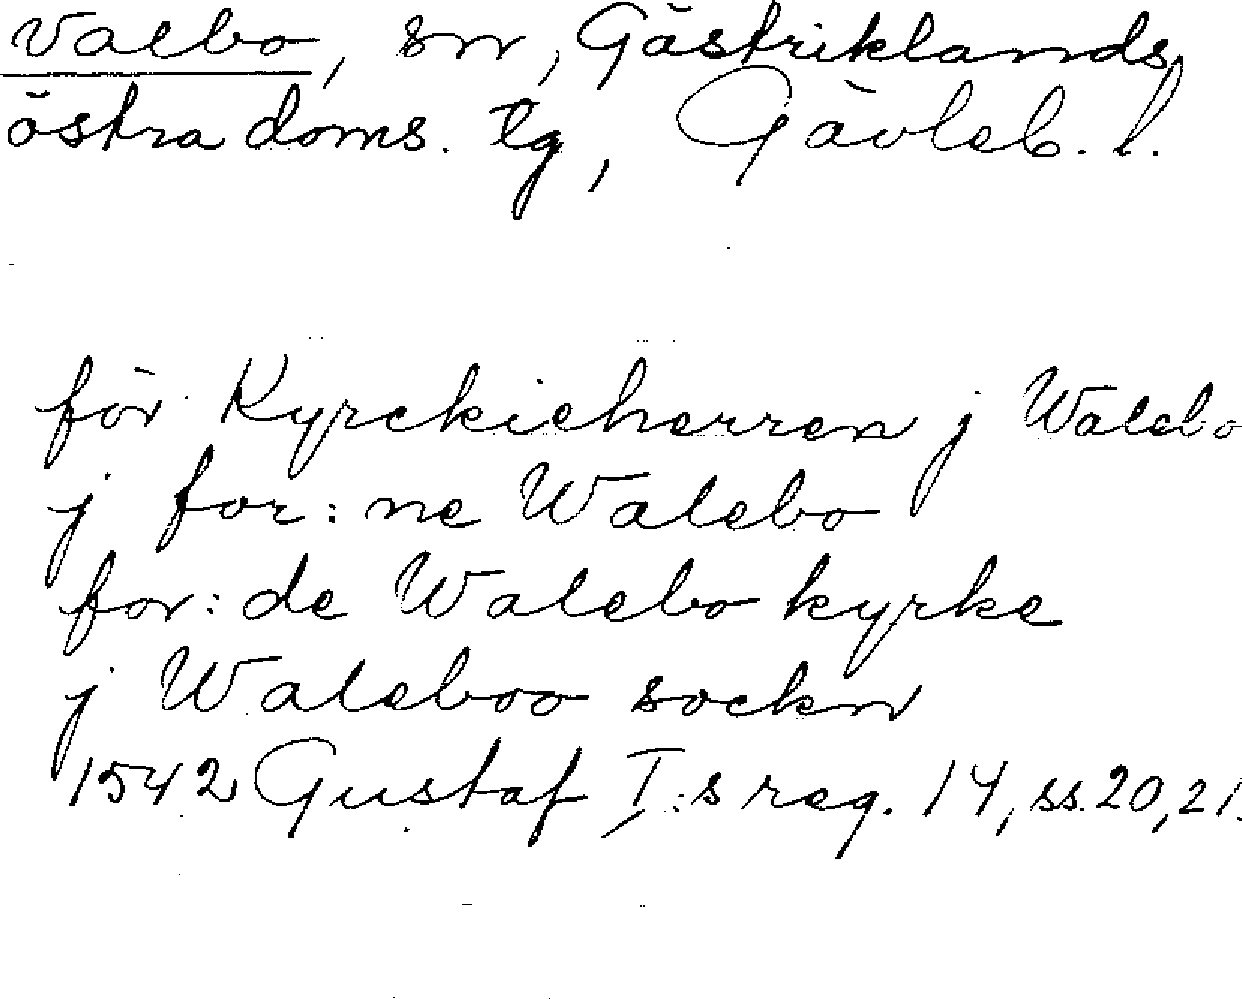 Valbo, sn, Gästriklands
östra doms. tg, Gävleb. l.
för Kyrckieherren j Walebo
j for:ne Walebo
for:de Walebo kyrke
j Waleboo sockn
1542 Gustaf I:s reg. 14, ss. 20, 21.